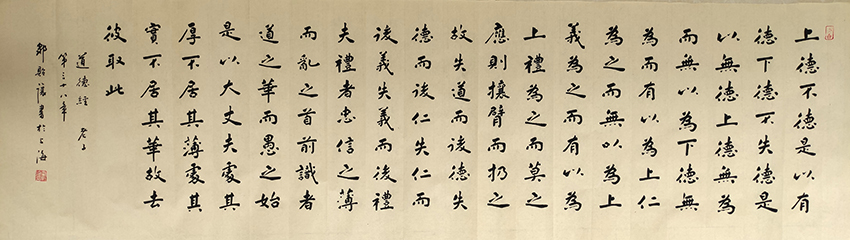 上德不德是以有
德下德不失德是
以無德上德無為
而無以為下德無
為而有以為上仁
為之而無以為上
義為之而有以為
上禮為之而莫之
應則攘臂而扔之
故失道而後德失
德而後仁失仁而
後義失義而後禮
夫禮者忠信之薄
而亂之首前識者
道之華而愚之始
是以大丈夫處其
厚不居其薄處其
實不居其華故去
彼取此
道德經 老子
第三十八章
書於上海